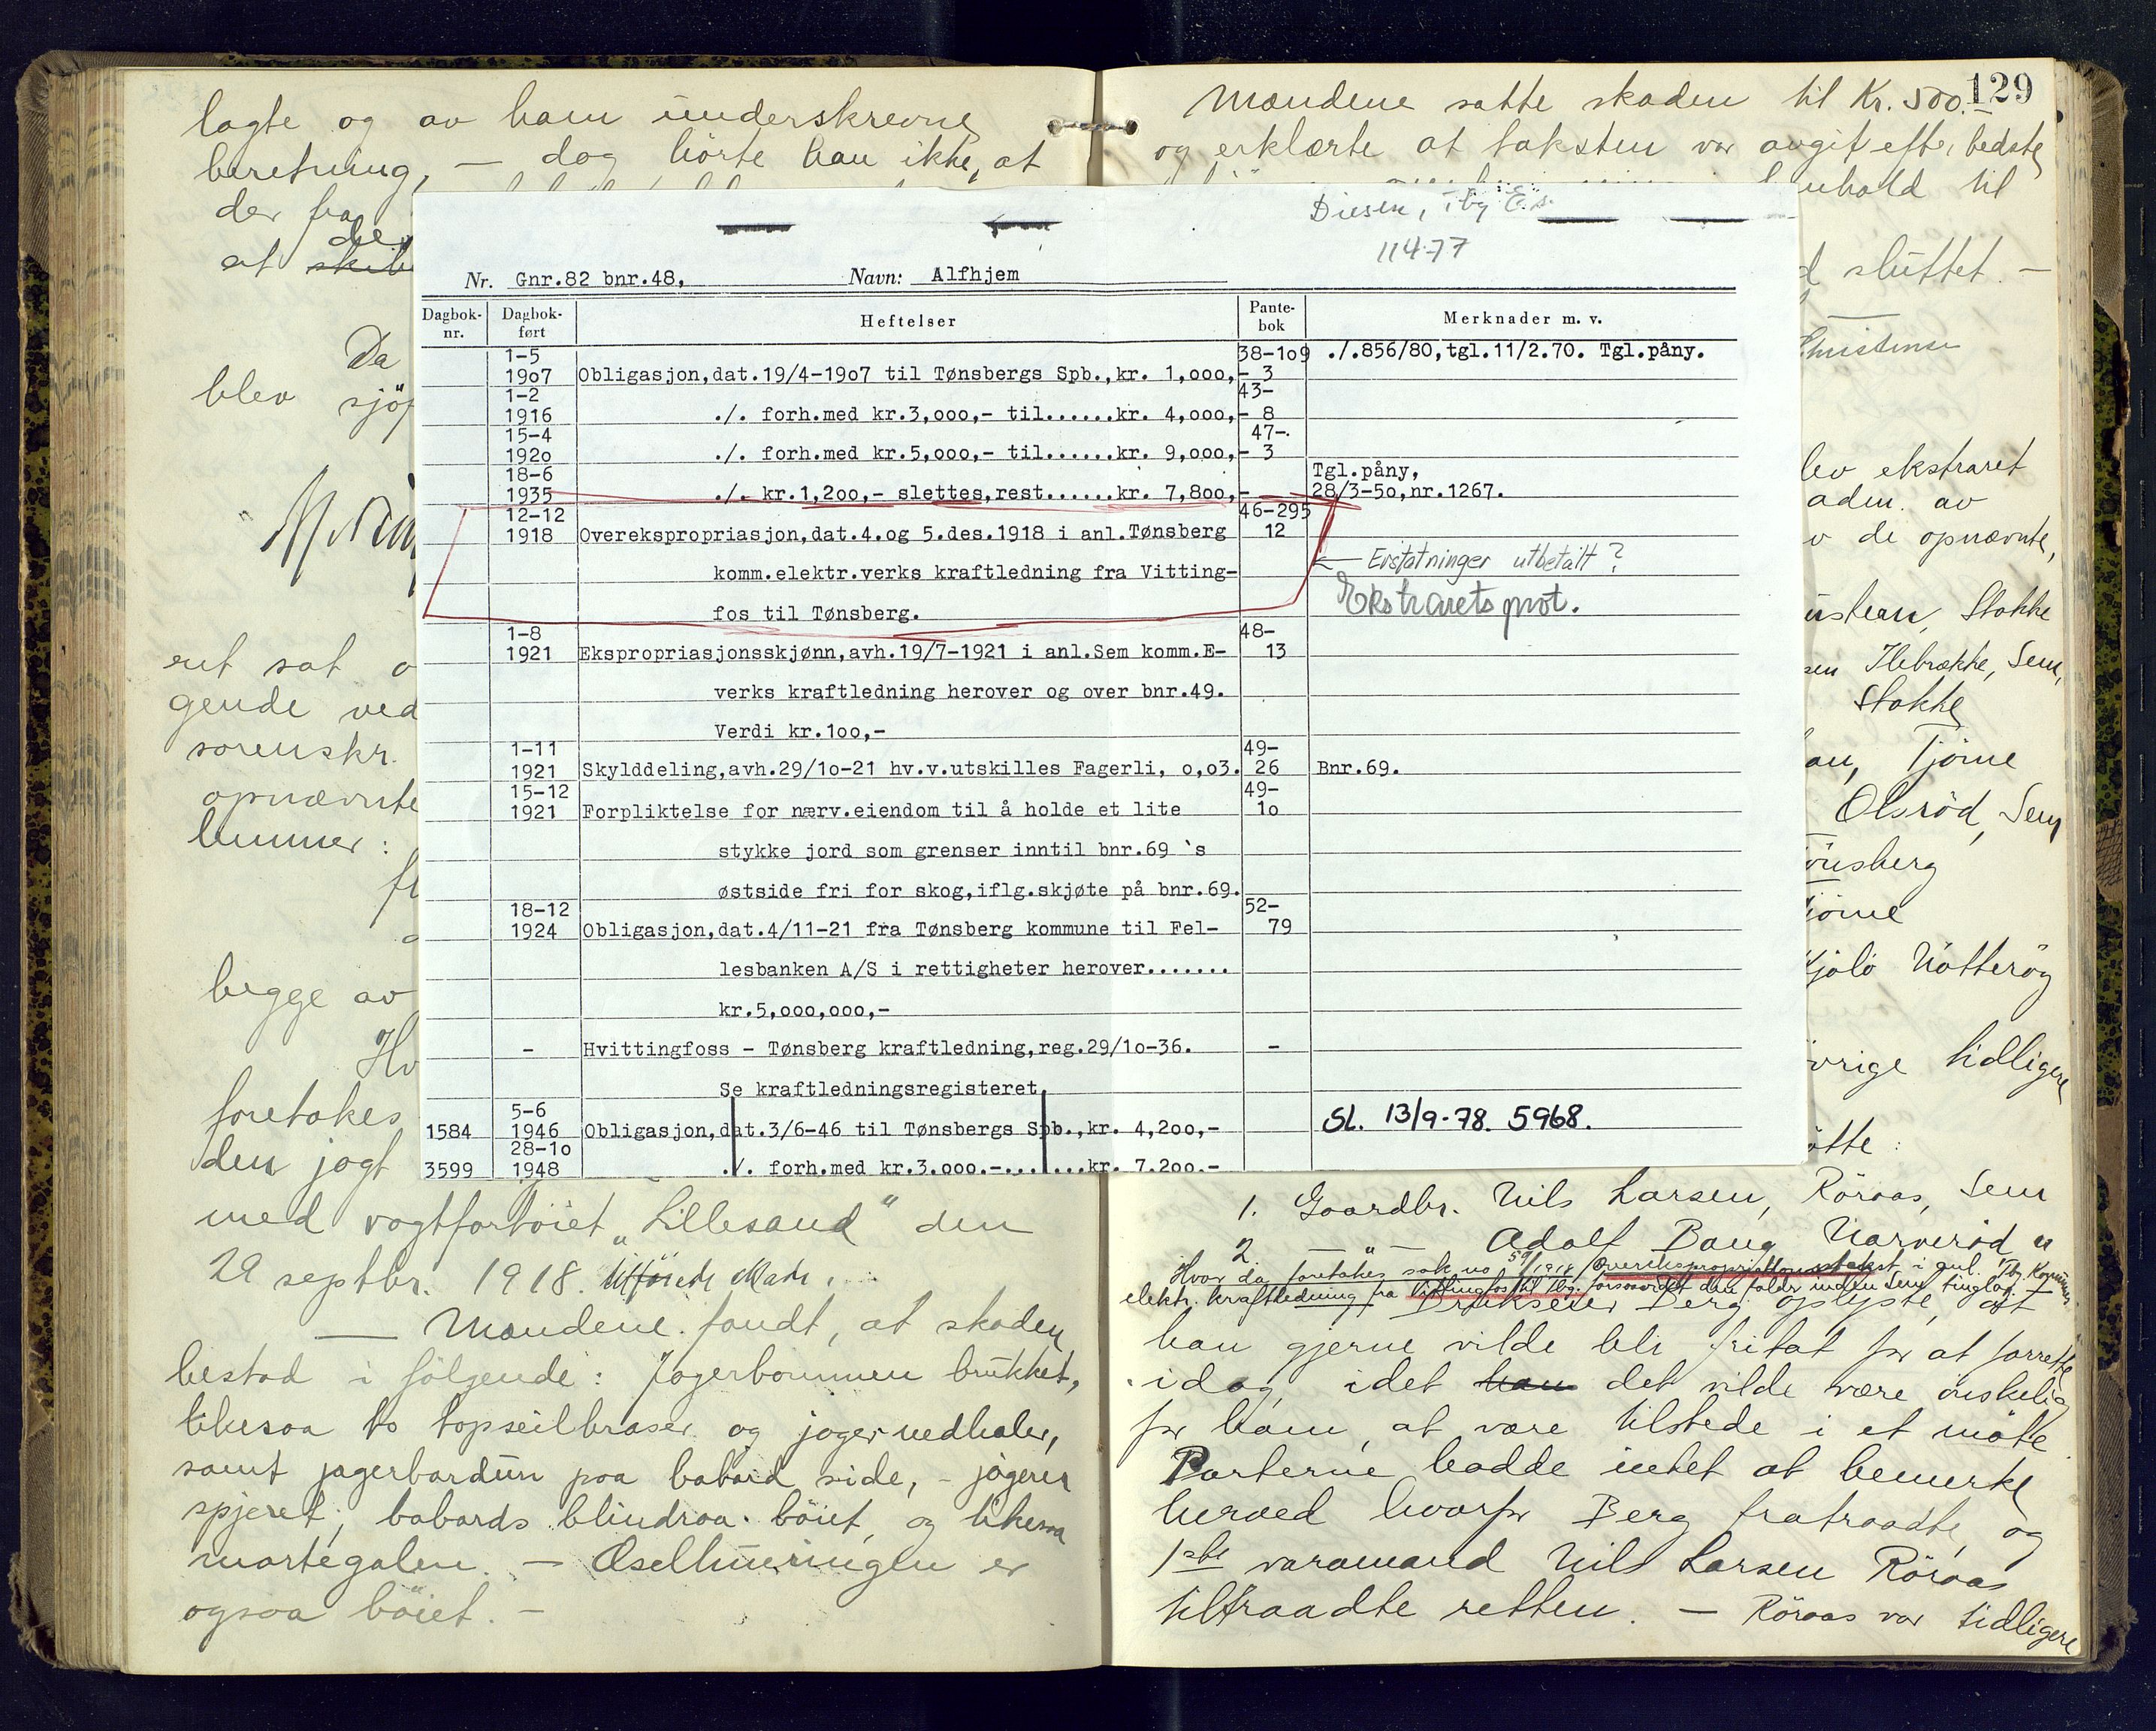 lagte og av ham underskrevne
beretning, — dog hörte han ikke, at
der fra
de
at
Da
blev sjöf
ret sat o
gende ved
sorenskr.
opnævnte
lemmer:
begge av
Hv
foretakes
den jagt
med vagtfartöiet "Lillesand" den
29 septbr. 1918.
— Mændene fandt, at skaden
bestod i fölgende: Jagerbommen brukket,
likesaa to topseilbraser og jager nedhaler,
samt jagerbardun paa babord side, – jageren
spjeret, babords blindraa böiet, og likesaa
martegalen. — Eselhueringen er
ogsaa böiet. —
Diesen, Tbg E.s.
11477
Nr. Gnr.82 bnr.48, Navn: Alfhjem
Dagbok-nr. Dagbok-ført Heftelser Pante-bok Merknader m. v.
1-5 38-1o9 ./.856/80,tgl.11/2.70. Tgl.påny.
19o7 Obligasjon,dat.19/4-19o7 til Tønsbergs Spb.,kr. 1,ooo,- 3
1-2 43-
1916 ./. forh.med kr.3,ooo,- til......kr. 4,ooo,- 8
15-4 47-.
192o ./. forh.med kr.5,ooo,- til......kr. 9,ooo,- 3
18-6 Tgl.påny,
1935 ./. kr.1,2oo,- slettes,rest......kr. 7,8oo,- 28/3-5o,nr.1267.
12-12 46-295
1918 Overekspropriasjon,dat.4.og 5.des.1918 i anl.Tønsberg 12
komm.elektr.verks kraftledning fra Vitting- ← Erstatninger utbetalt?
fos til Tønsberg. Ekstraretsprot.
1-8 48-
1921 Ekspropriasjonsskjønn,avh.19/7-1921 i anl.Sem komm.E- 13
verks kraftledning herover og over bnr.49.
Verdi kr.1oo,-
1-11 49-
1921 Skylddeling,avh.29/1o-21 hv.v.utskilles Fagerli, o,o3. 26 Bnr.69.
15-12 49-
1921 Forpliktelse for nærv.eiendom til å holde et lite 1o
stykke jord som grenser inntil bnr.69 's
østside fri for skog,iflg.skjøte på bnr.69.
18-12 52-
1924 Obligasjon,dat.4/11-21 fra Tønsberg kommune til Fel- 79
lesbanken A/S i rettigheter herover.......
kr.5,ooo,ooo,-
- Hvittingfoss - Tønsberg kraftledning,reg.29/1o-36. -
Se kraftledningsregisteret.
5-6
1584 1946 Obligasjon,dat.3/6-46 til Tønsbergs Spb.,kr. 4,2oo,- Sl. 13/9-78. 5968.
28-1o
3599 1948 ./. forh.med kr.3.ooo.-.......kr. 7.2oo.-
129
Mændene satte skaden til Kr. 500.—
og erklærte at taksten var avgit efter bedste
henhold til
d sluttet. —
Christensen
lev ekstraret
aden av
v de opnævnte,
Stokke
Ilebrække, Sem,
Stokke
Tjöme
Olsröd, Sem
önsberg
jöme
Nötteröy
övrige tidligere
ötte:
1. Gaardbr. Nils Larsen, Röraas, Sem
2. — " — Adolf Bang Narveröd "
Hvor da foretakes sak no 59/1918 Overekspropriationstakst i anl. Tbg Kommunes
elektr. kraftledning fra Vittingfos til Tbg. forsaavidt den falder inden Sem tinglag. —
Brukseier Berg oplyste, at
han gjerne vilde bli fritat for at forrette
idag, idet han det vilde være önskelig
for ham, at være tilstede i et möte.
Parterne hadde intet at bemerke
herved hvorfor Berg fratraadte, og
1ste varamand Nils Larsen Röraas
tiltraadte retten. — Röraas var tidligere